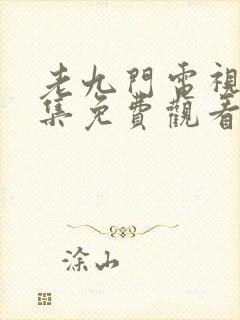 老九門電視
集免費觀看
涂山